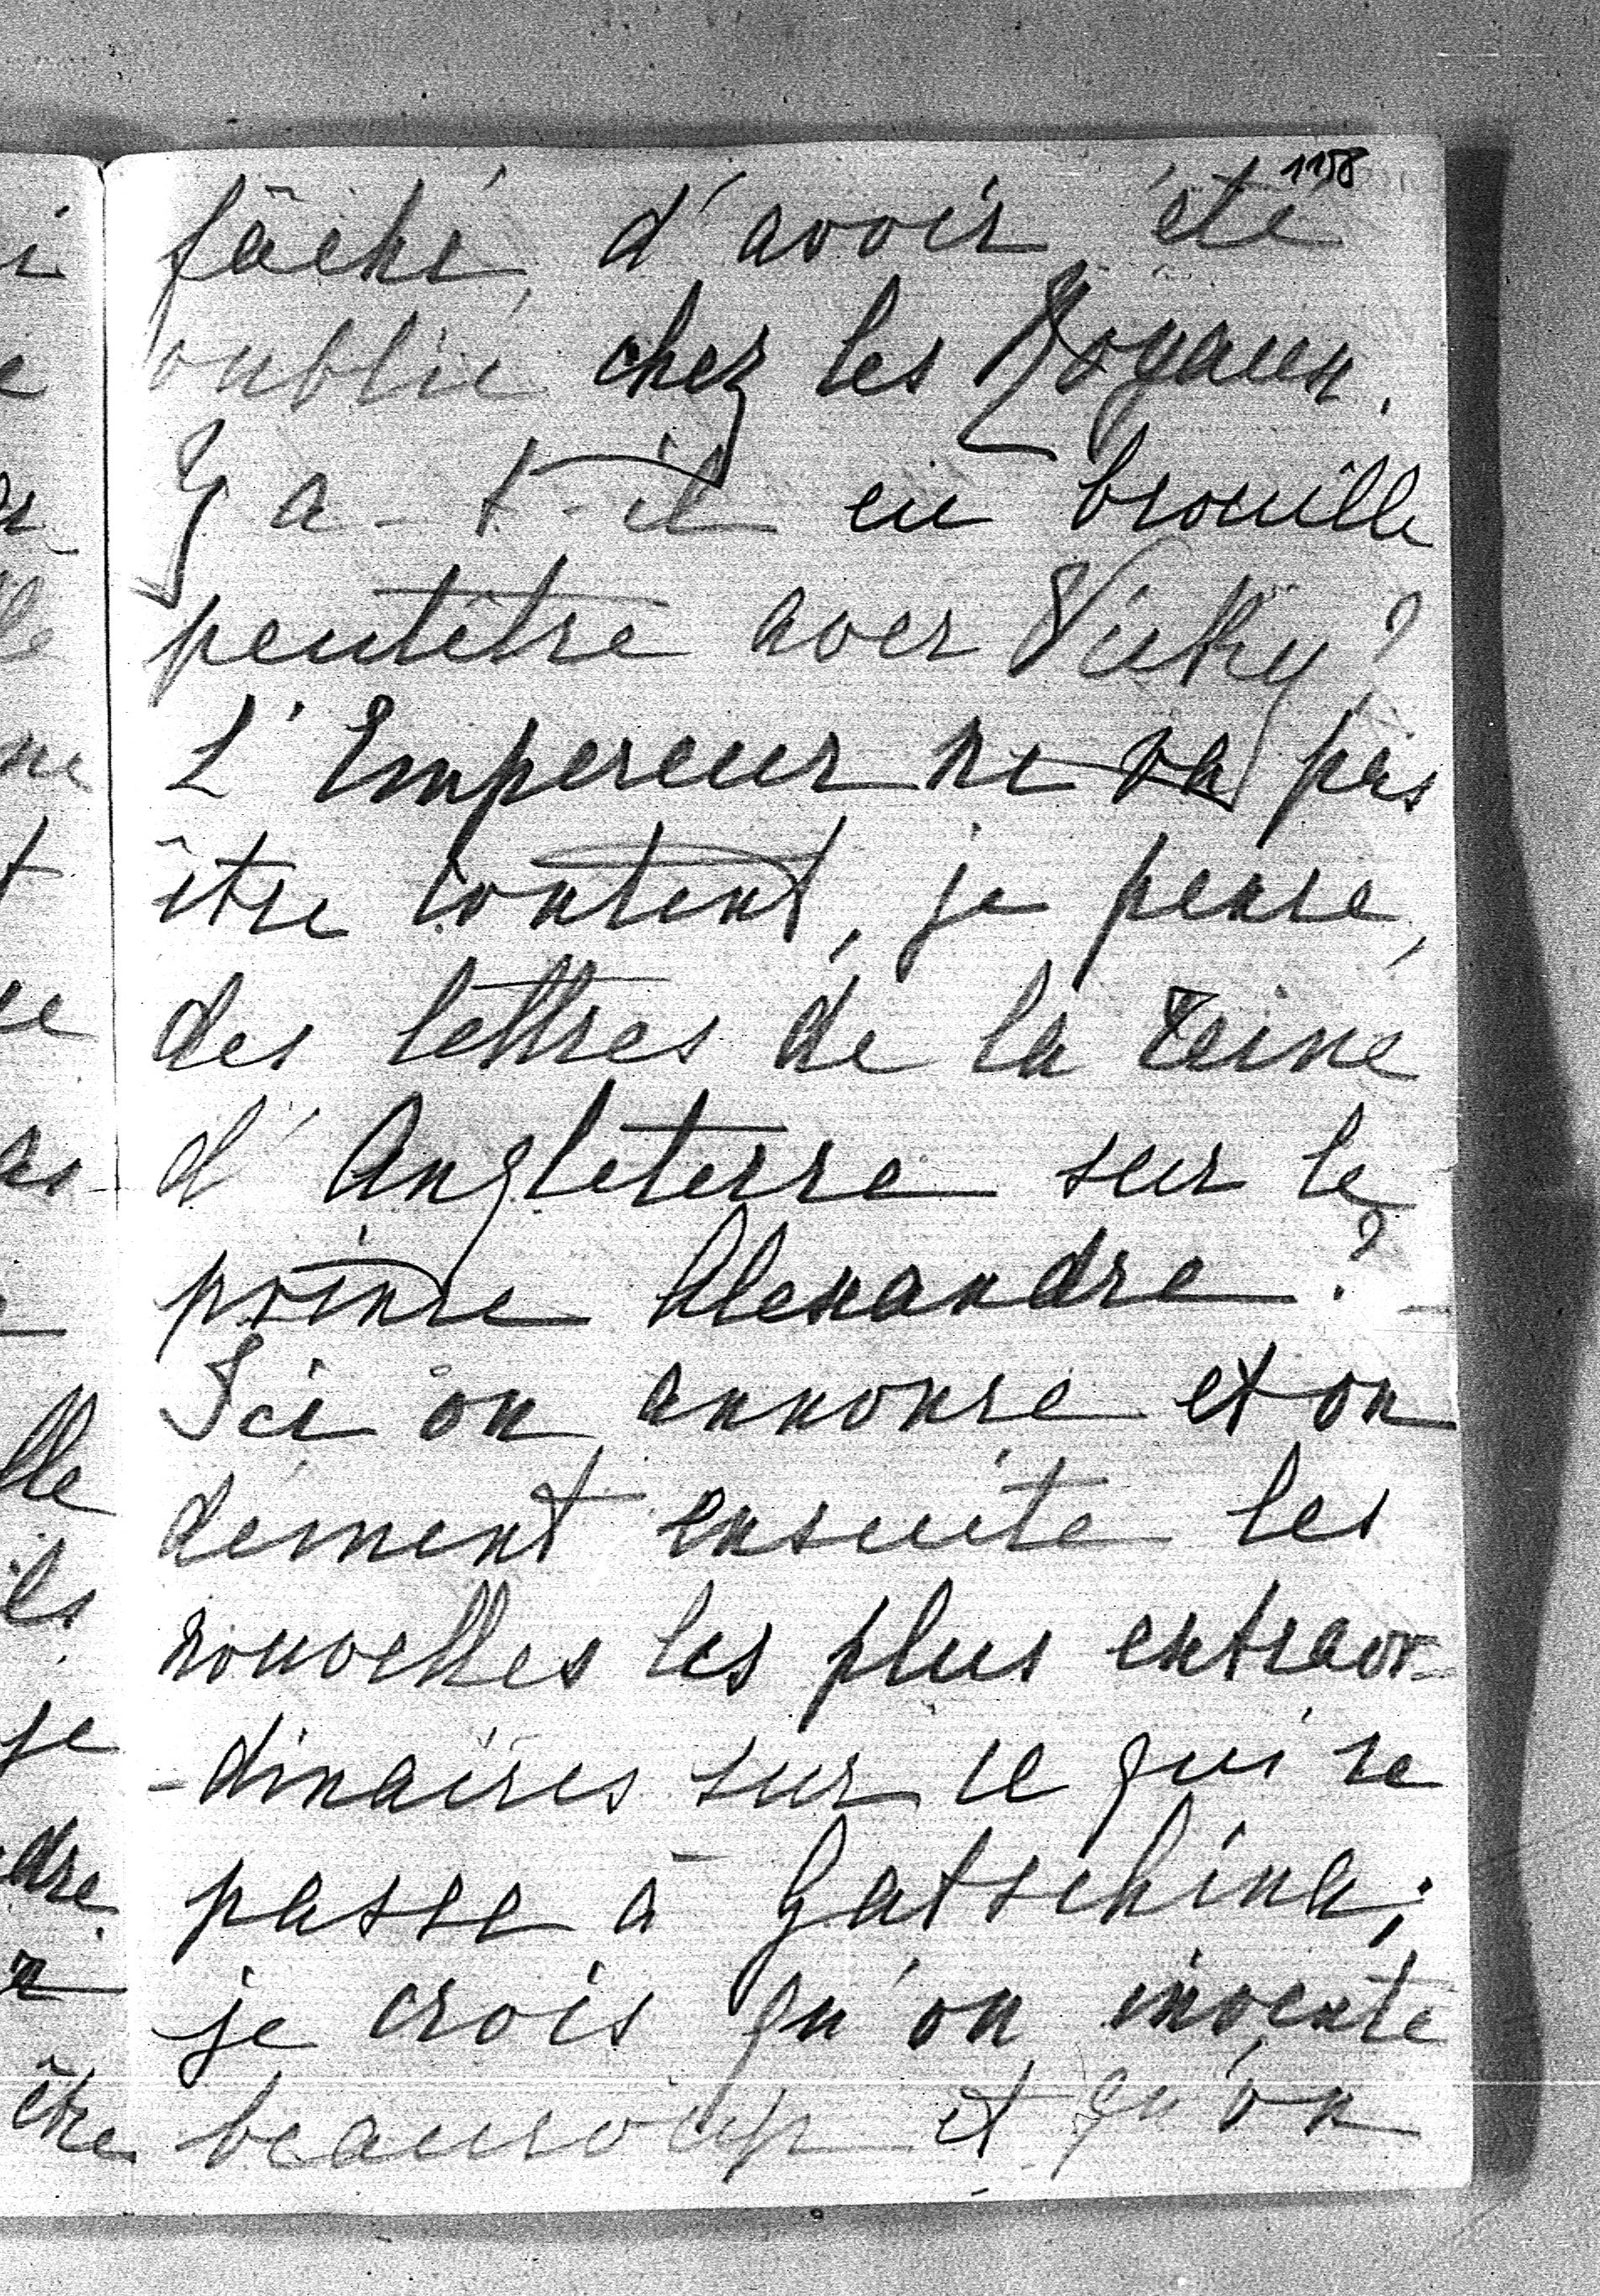 1158
fâché d'avoir été
oublié chez les Royaux.
Y a-t-il eu brouille
peutêtre avec Vicky?
L'Empereur ne va pas
être content, je pense,
des lettres de la reine
d'Angleterre sur le
prince Alexandre?
Ici on annonce et on
dément ensuite les
nouvelles les plus extraor-
-dinaires sur ce qui se
passe à Gatschina;
je crois qu'on invente
beaucoup et qu'on